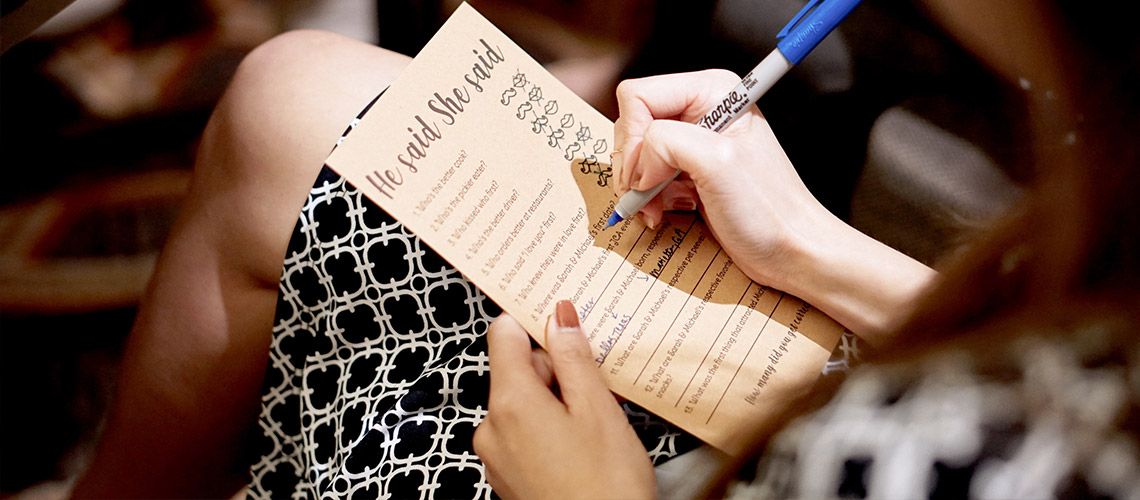 He said She said
1. Who's the better cook?
2. Who's the pickier eater?
3. Who kissed who first?
4. Who's the better driver?
5. Who orders better at restaurants?
6. Who said "I love you" first?
7. Who knew they were in love first?
8. Where was Sarah & Michael's first date?
Sarah & Michael's first JCA event
here were Sarah & Michael born, respectively?
Dallas Texas
America
11. What are Sarah & Michael's respective pet peeves
12. What are Sarah & Michael's respective favorite
snacks?
13. What was the first thing that attracted
How many did you get correct
Sharpie